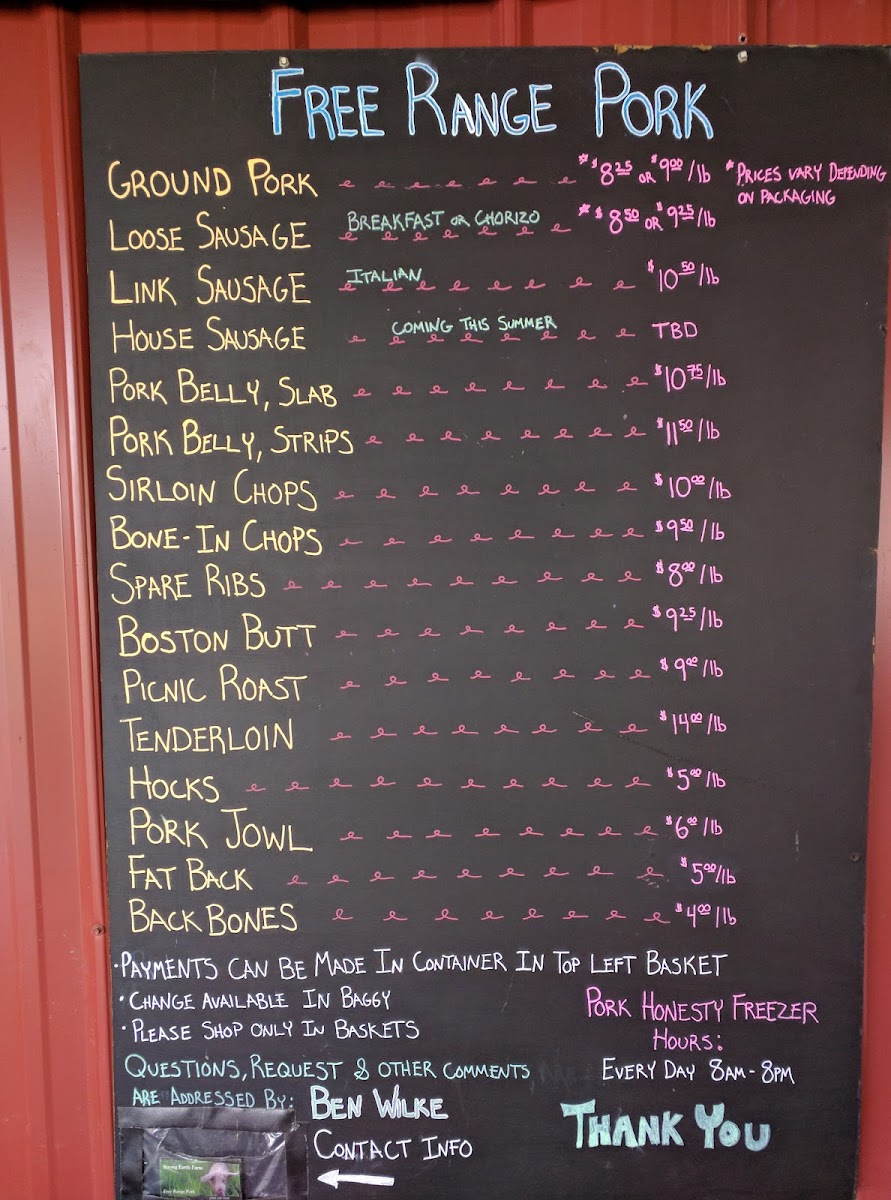 FREE RANGE PORK
GROUND PORK *$8.25 OR $9.00/lb *PRICES VARY DEPENDING
ON PACKAGING
LOOSE SAUSAGE BREAKFAST OR CHORIZO *$8.50 OR $9.25/lb
LINK SAUSAGE ITALIAN $10.50/lb
HOUSE SAUSAGE COMING THIS SUMMER TBD
PORK BELLY, SLAB $10.75/lb
PORK BELLY, STRIPS $11.50/lb
SIRLOIN CHOPS $10.00/lb
BONE-IN CHOPS $9.50/lb
SPARE RIBS $8.00/lb
BOSTON BUTT $9.25/lb
PICNIC ROAST $9.00/lb
TENDERLOIN $14.00/lb
HOCKS $5.00/lb
PORK JOWL $6.00/lb
FAT BACK $5.00/lb
BACK BONES $4.00/lb
·PAYMENTS CAN BE MADE IN CONTAINER IN TOP LEFT BASKET
·CHANGE AVAILABLE IN BAGGY
·PLEASE SHOP ONLY IN BASKETS
PORK HONESTY FREEZER
HOURS:
EVERY DAY 8AM-8PM
QUESTIONS, REQUEST & OTHER COMMENTS
ARE ADDRESSED BY: BEN WILKE
CONTACT INFO
THANK YOU
Strong Earth Farm
Free Range Pork